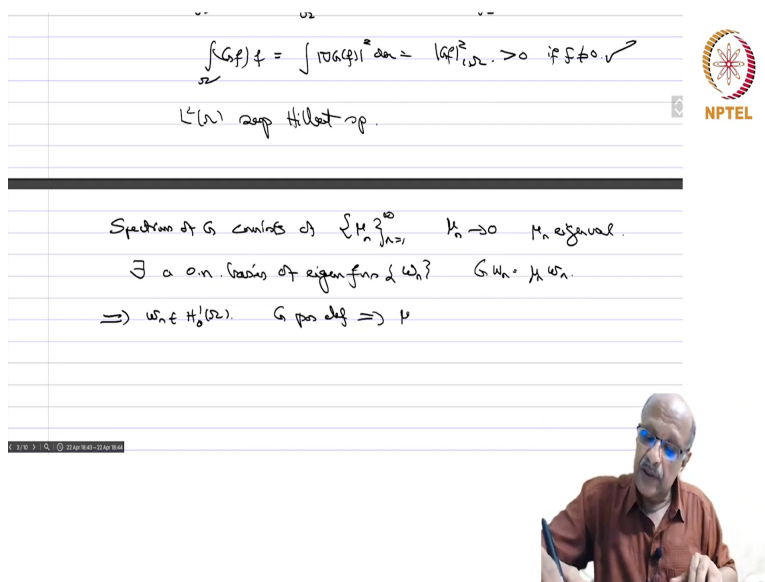 ∫_Ω (Gf) f = ∫_Ω |∇G(f)|² dx = |Gf|²_{1,Ω} > 0 if f ≠ 0. ✓
L²(Ω) sep Hilbert sp.
NPTEL
Spectrum of G consists of {μ_n}_{n=1}^∞ μ_n → 0 μ_n eigenval.
∃ a o.n. basis of eigen fns {w_n} G w_n = μ_n w_n.
⇒ w_n ∈ H_0^1(Ω). G pos def ⇒ μ
3/10 22 Apr 18:43–22 Apr 18:44